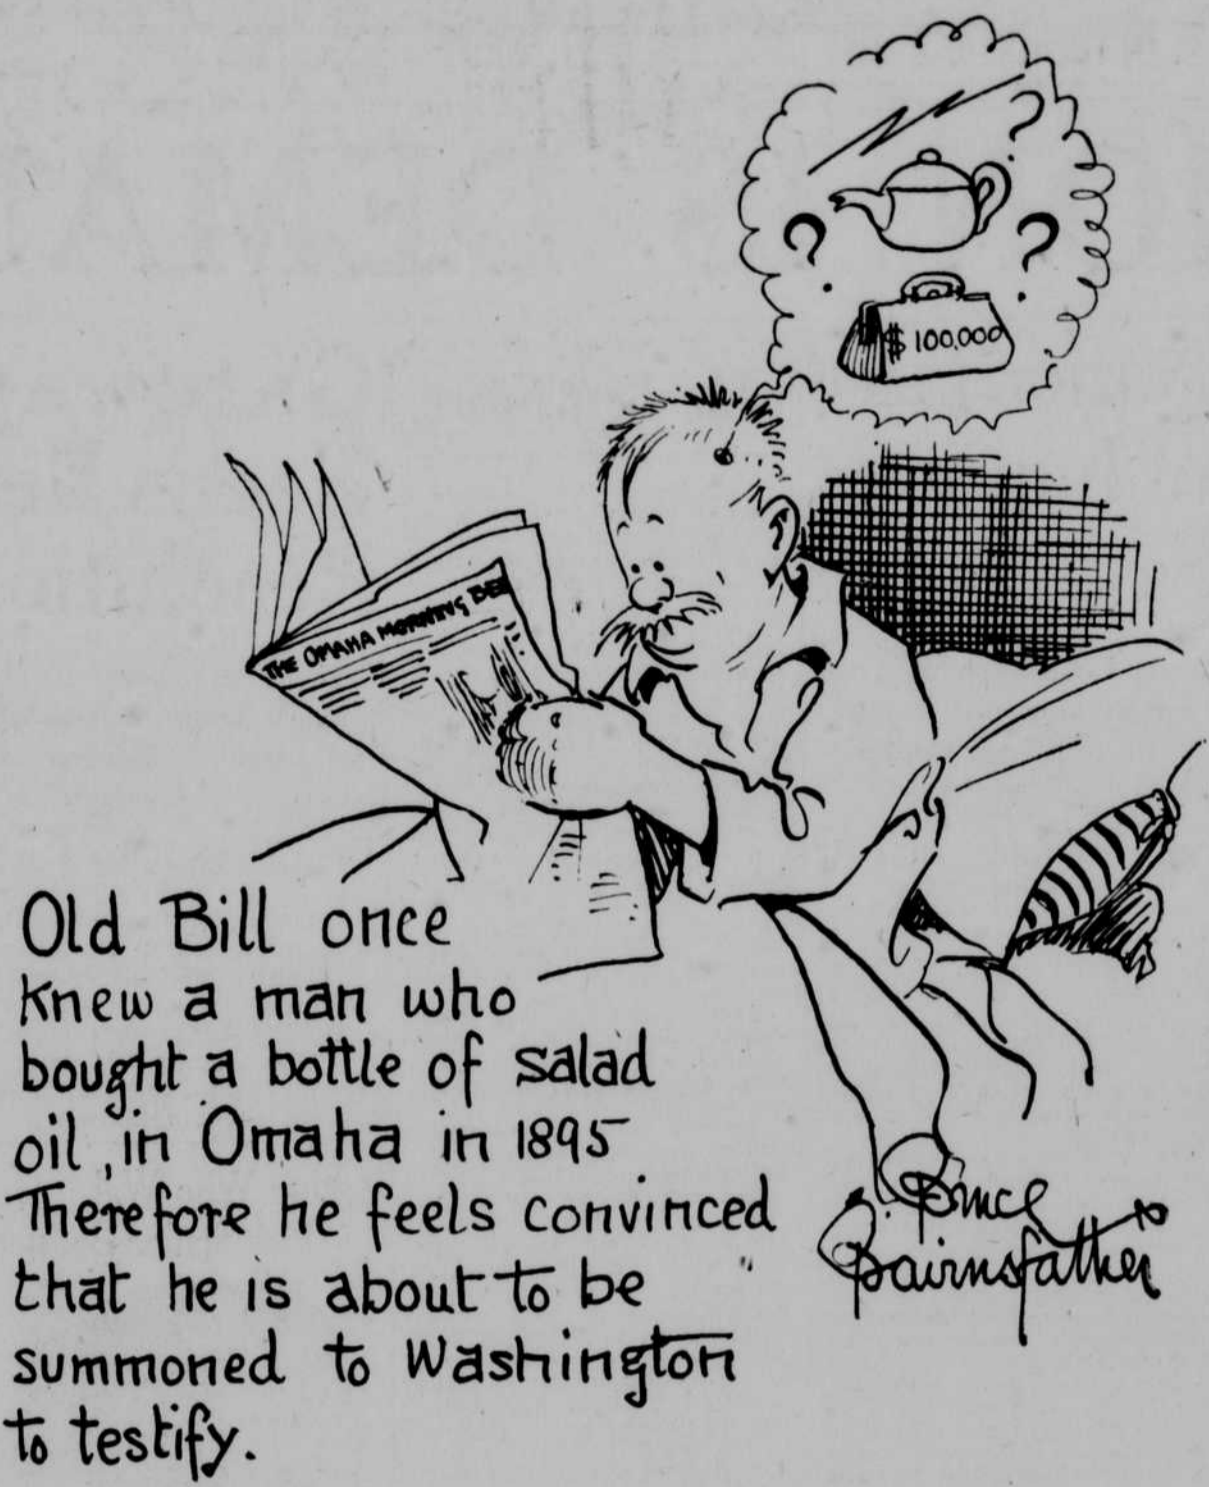 ? 
? ?
$ 100,000
THE OMAHA MORNING BEE
Old Bill once
knew a man who
bought a bottle of salad
oil, in Omaha in 1895
Therefore he feels convinced
that he is about to be
summoned to Washington
to testify.
Bruce
Bairnsfather